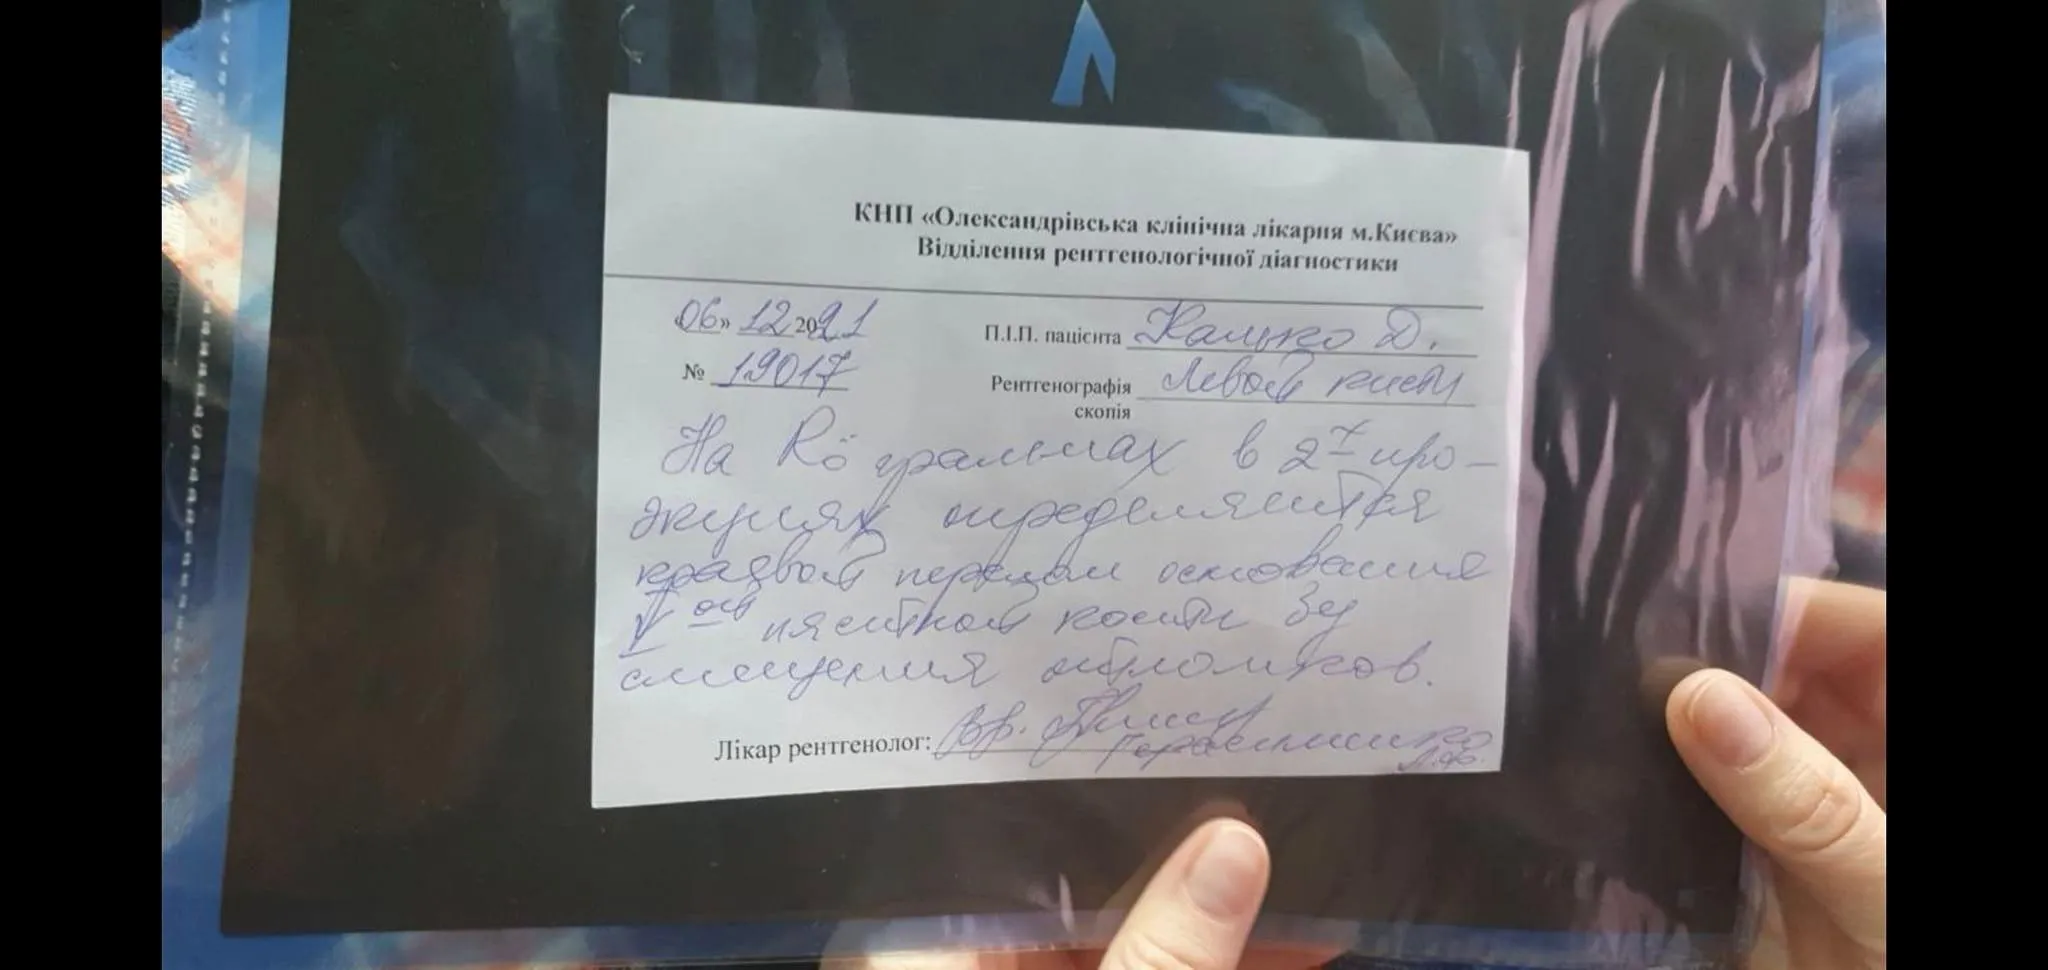 КНП «Олександрівська клінічна лікарня м.Києва»
Відділення рентгенологічної діагностики
«06» 12 2021
П.І.П. пацієнта Калько Д.
№ 19017
Рентгенографія левой кисти
скопія
На Rö граммах в 2х про-
экциях определяется
краевой перелом основания
V ой пястной кости без
смещения обломков.
Лікар рентгенолог: Вр.
Герасименко